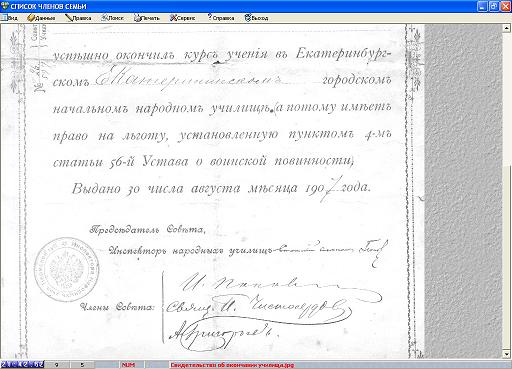 СПИСОК ЧЛЕНОВ СЕМЬИ
Вид Данные Правка Поиск Печать Сервис Справка Выход
успѣшно окончилъ курсъ ученія въ Екатеринбург-
скомъ Екатерининскомъ городскомъ
начальномъ народномъ училищѣ, (а потому имѣетъ
право на льготу, установленную пунктомъ 4-мъ
статьи 56-й Устава о воинской повинности)
Выдано 30 числа августа мѣсяца 1907 года.
Предсѣдатель Совѣта,
Инспекторъ народныхъ училищъ
И. Попов
Члены Совѣта: Свящ. И. Чистосердов
А. Григорьевъ.
21:42:52 9 5 NUM Свидетельство об окончании училища.jpg